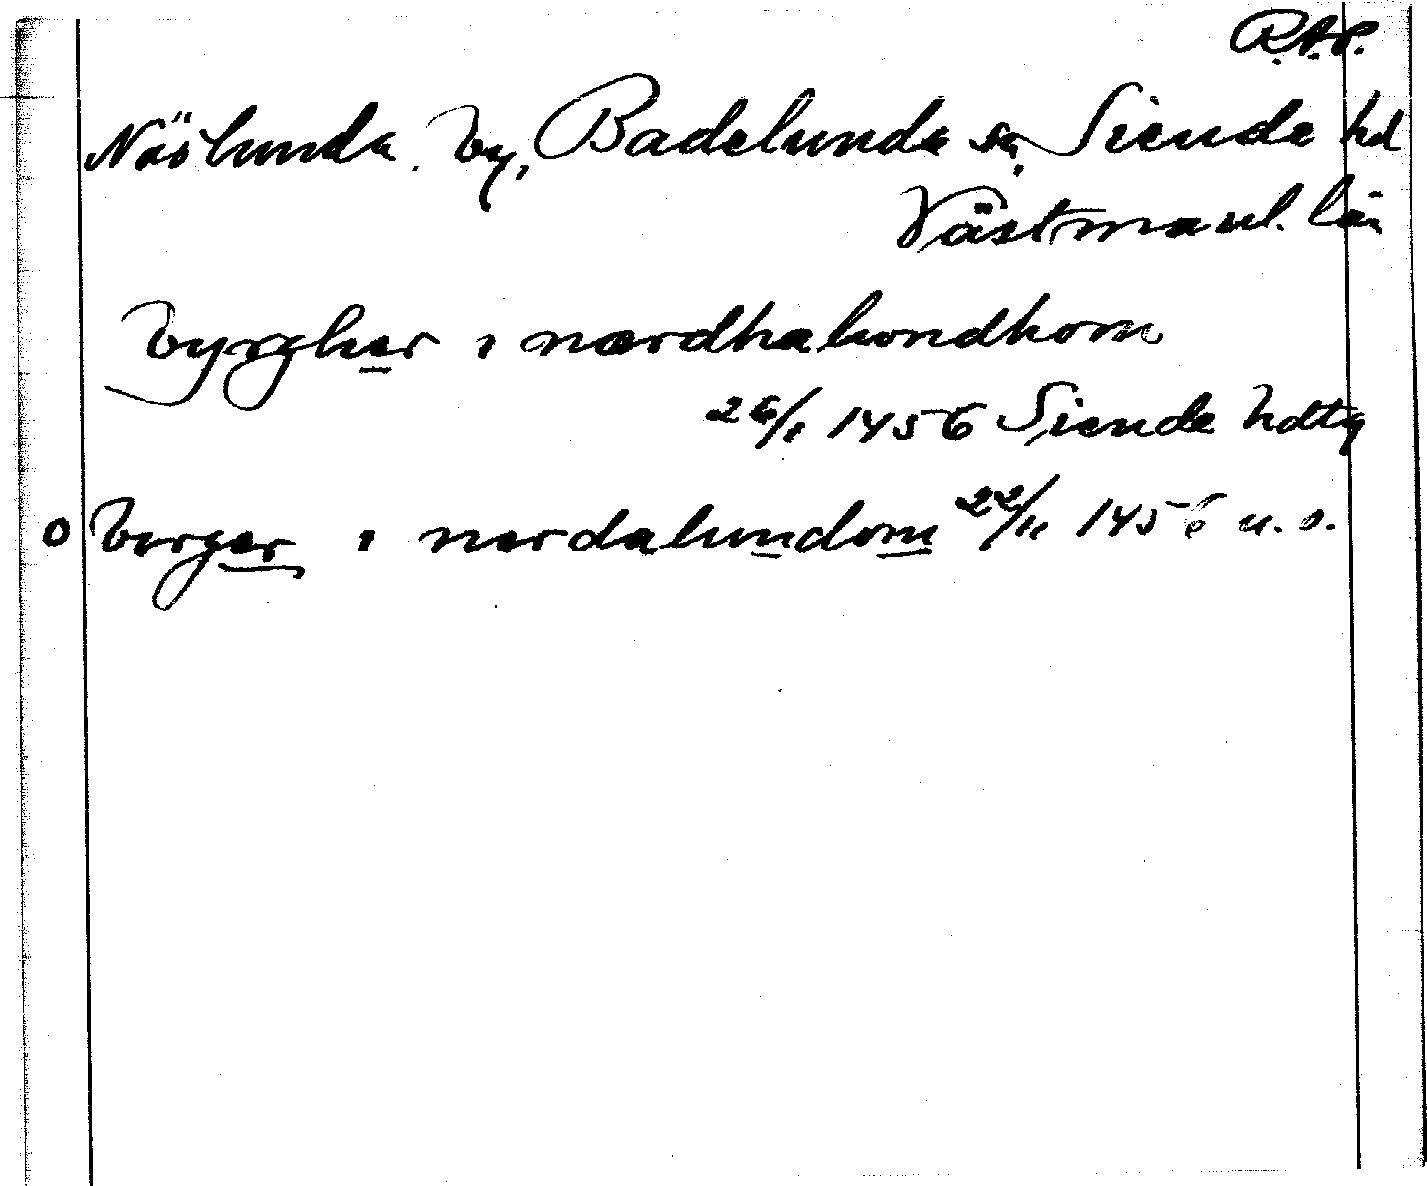 R.A.P.
Näslunda by, Badelunda sn, Siende hd
Västmanl. län
byrgher i nærdhalundhom
26/1 1456 Siende hdtg
o birger i nerdalundom 22/11 1456 u. s.